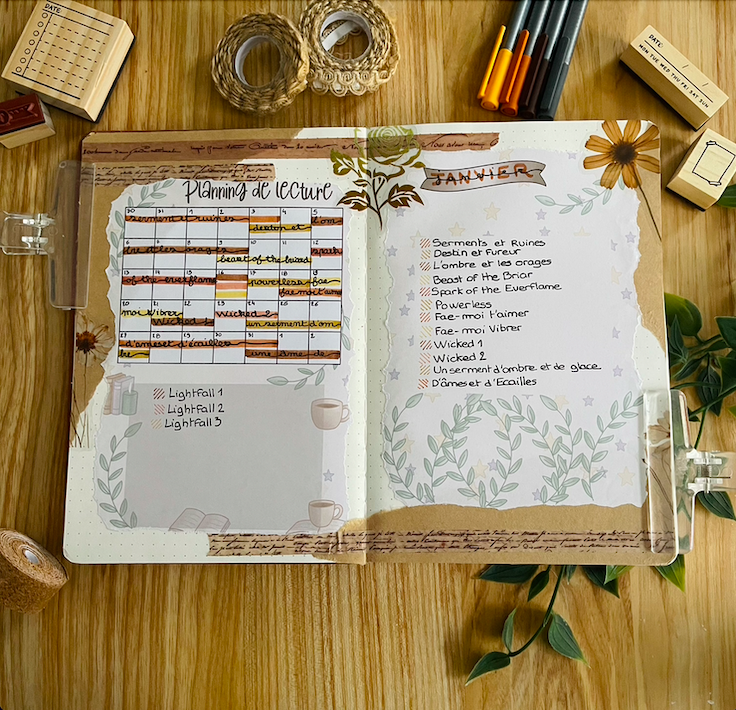 DATE:
DATE:
MON TUE WED THU FRI SAT SUN
Planning de lecture
30 31 1 2 3 4 5
Serment Ruines
destin et
6 7 8 9 10 11 12
beast of the briar
13 14 15 16 17 18 19
of the everflame
powerless fae
fae moi t'aimer
20 21 22 23 24 25 26
moi vibrer
Wicked 2
Wicked 1
un serment d'om
27 28 29 30 31 1 2
d'âmes et d'écailles
bre
une âme de
Lightfall 1
Lightfall 2
Lightfall 3
JANVIER
Serments et Ruines
Destin et Fureur
L'ombre et les orages
Beast of the Briar
Spark of the Everflame
Powerless
Fae-moi t'aimer
Fae-moi Vibrer
Wicked 1
Wicked 2
Un serment d'ombre et de glace
D'âmes et d'Ecailles